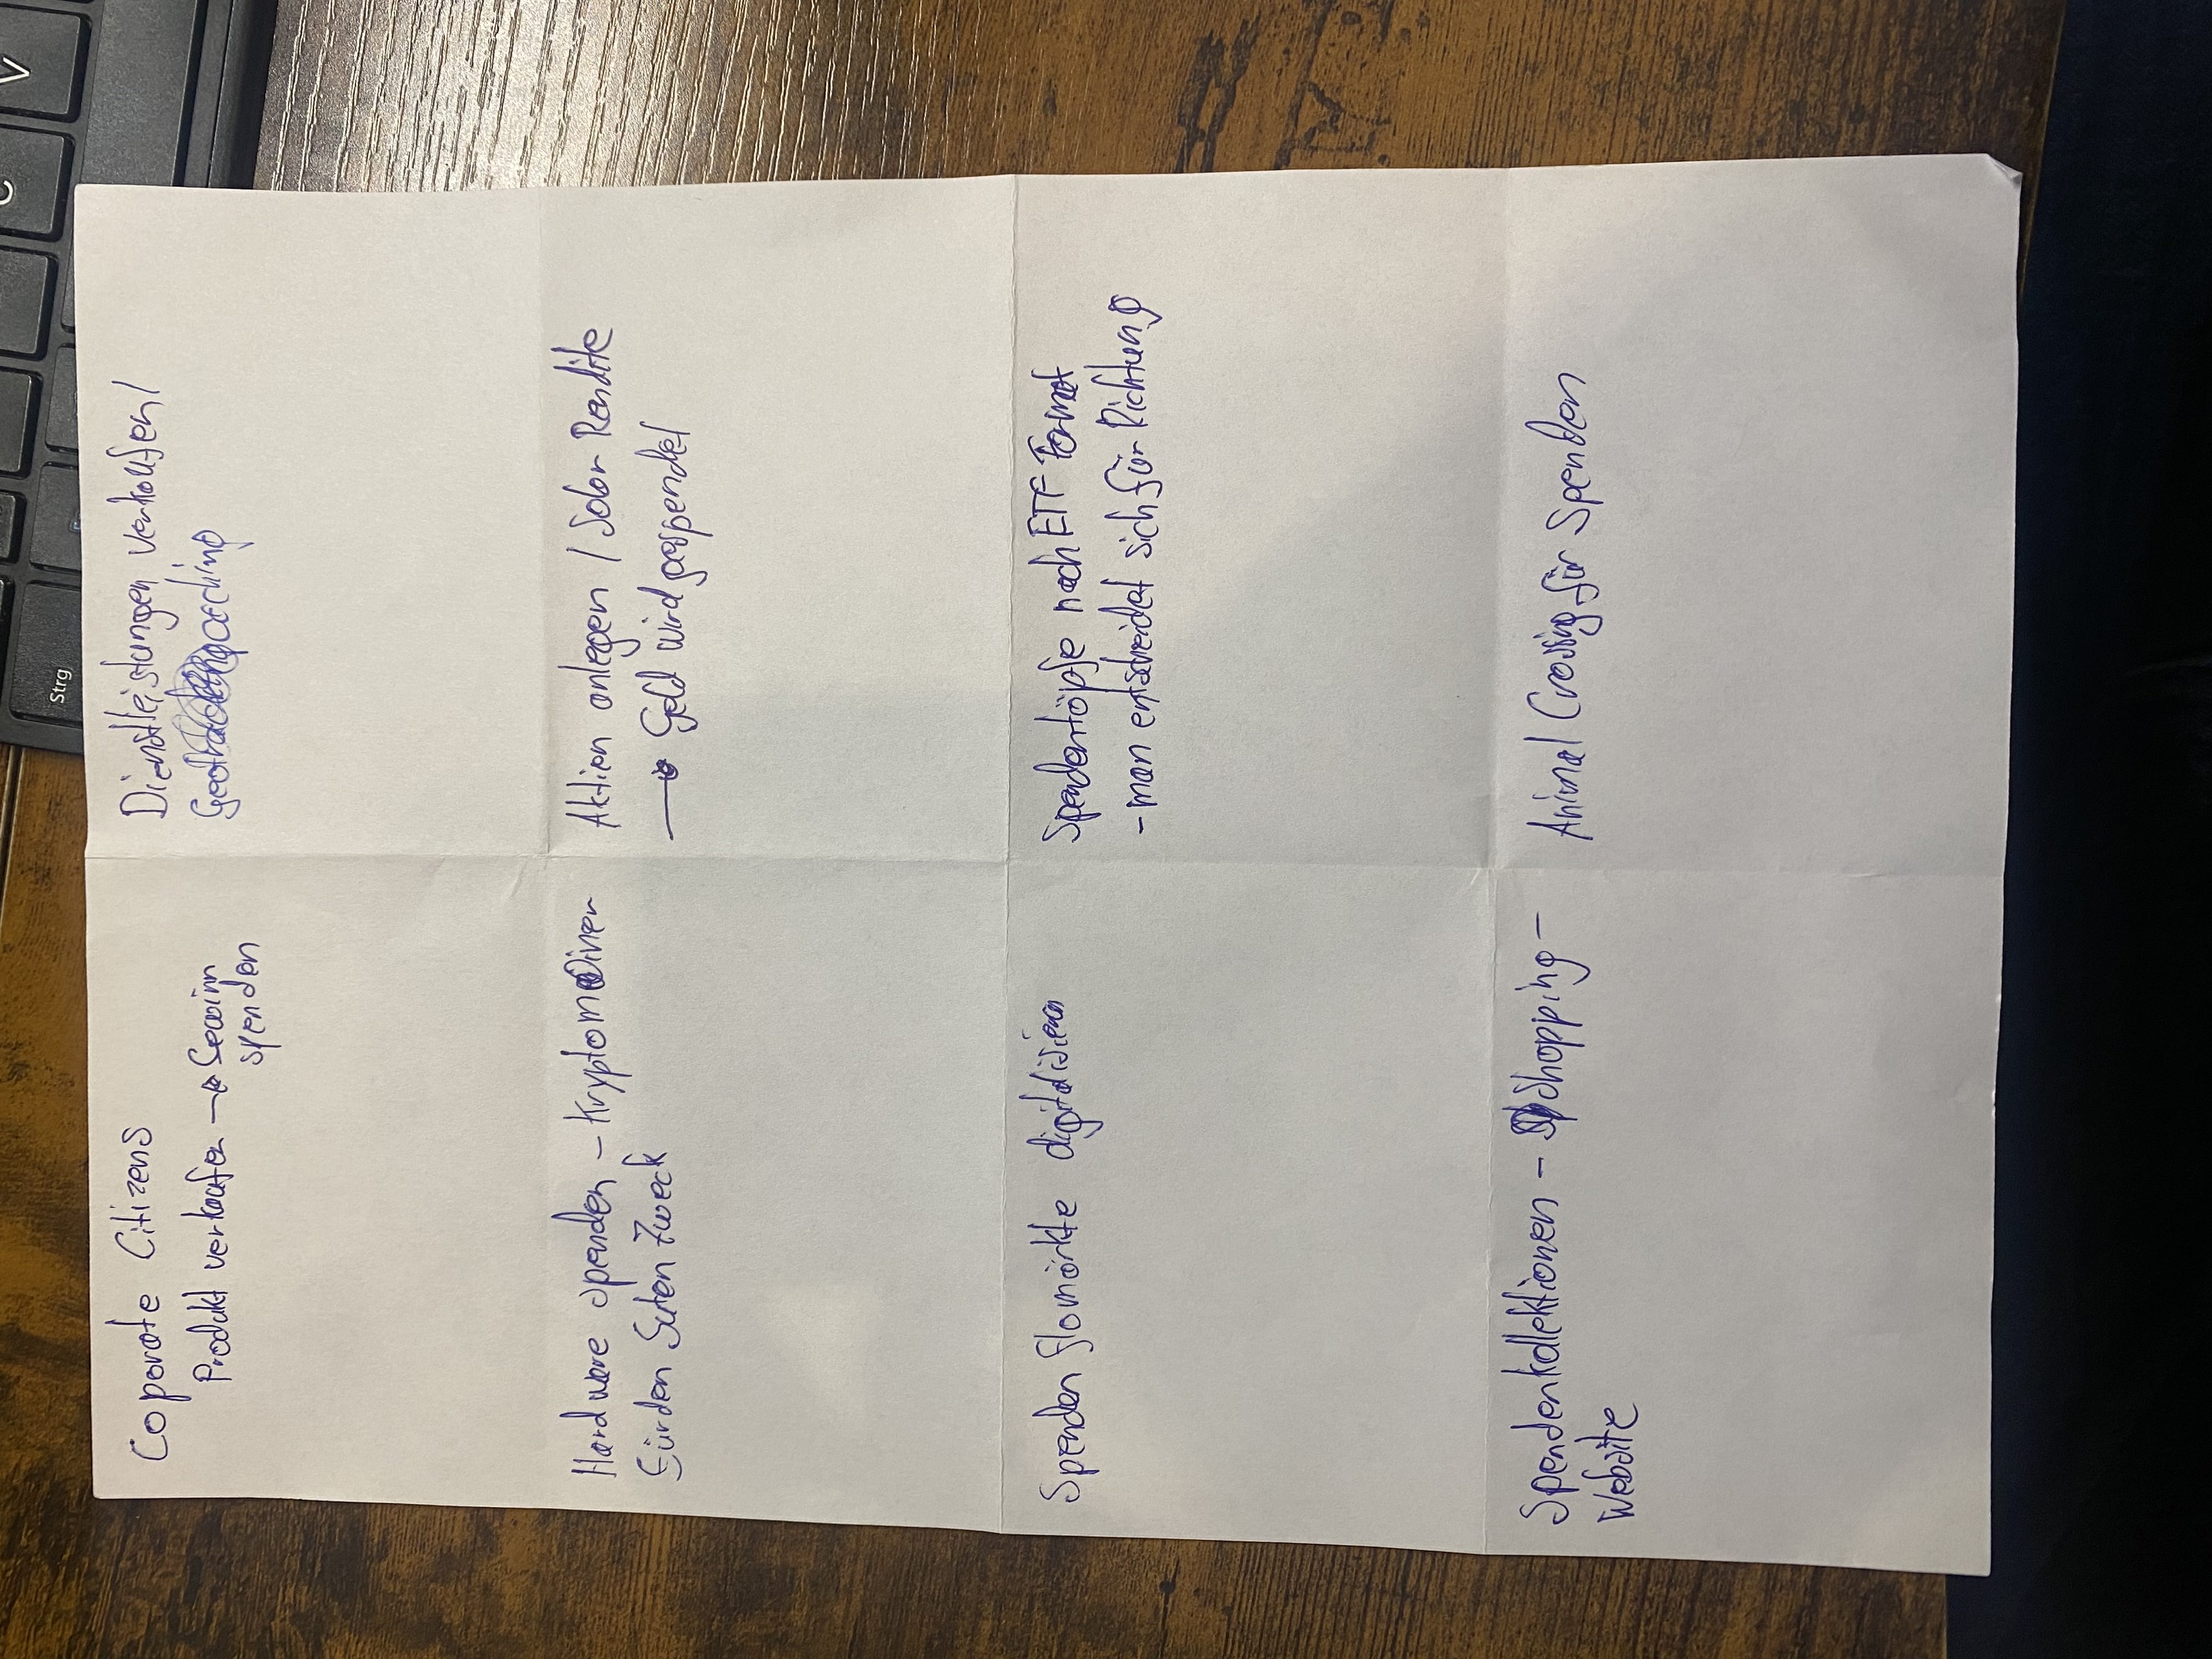 Strg
C
V
Coporate Citizens
Produkt verkaufen → Gewinn
spenden
Dienstleistungen verkaufen/
Geocaching
Hardware spenden – Kryptominer
für den Guten Zweck
Aktien anlegen / Solar Rendite
→ Geld wird gespendet
Spenden flomärkte digitalisieren
Spendentöpfe nach ETF Format
- man entscheidet sich für Richtung
Spendenkollektionen – Shopping –
Website
Animal Crossing für Spenden